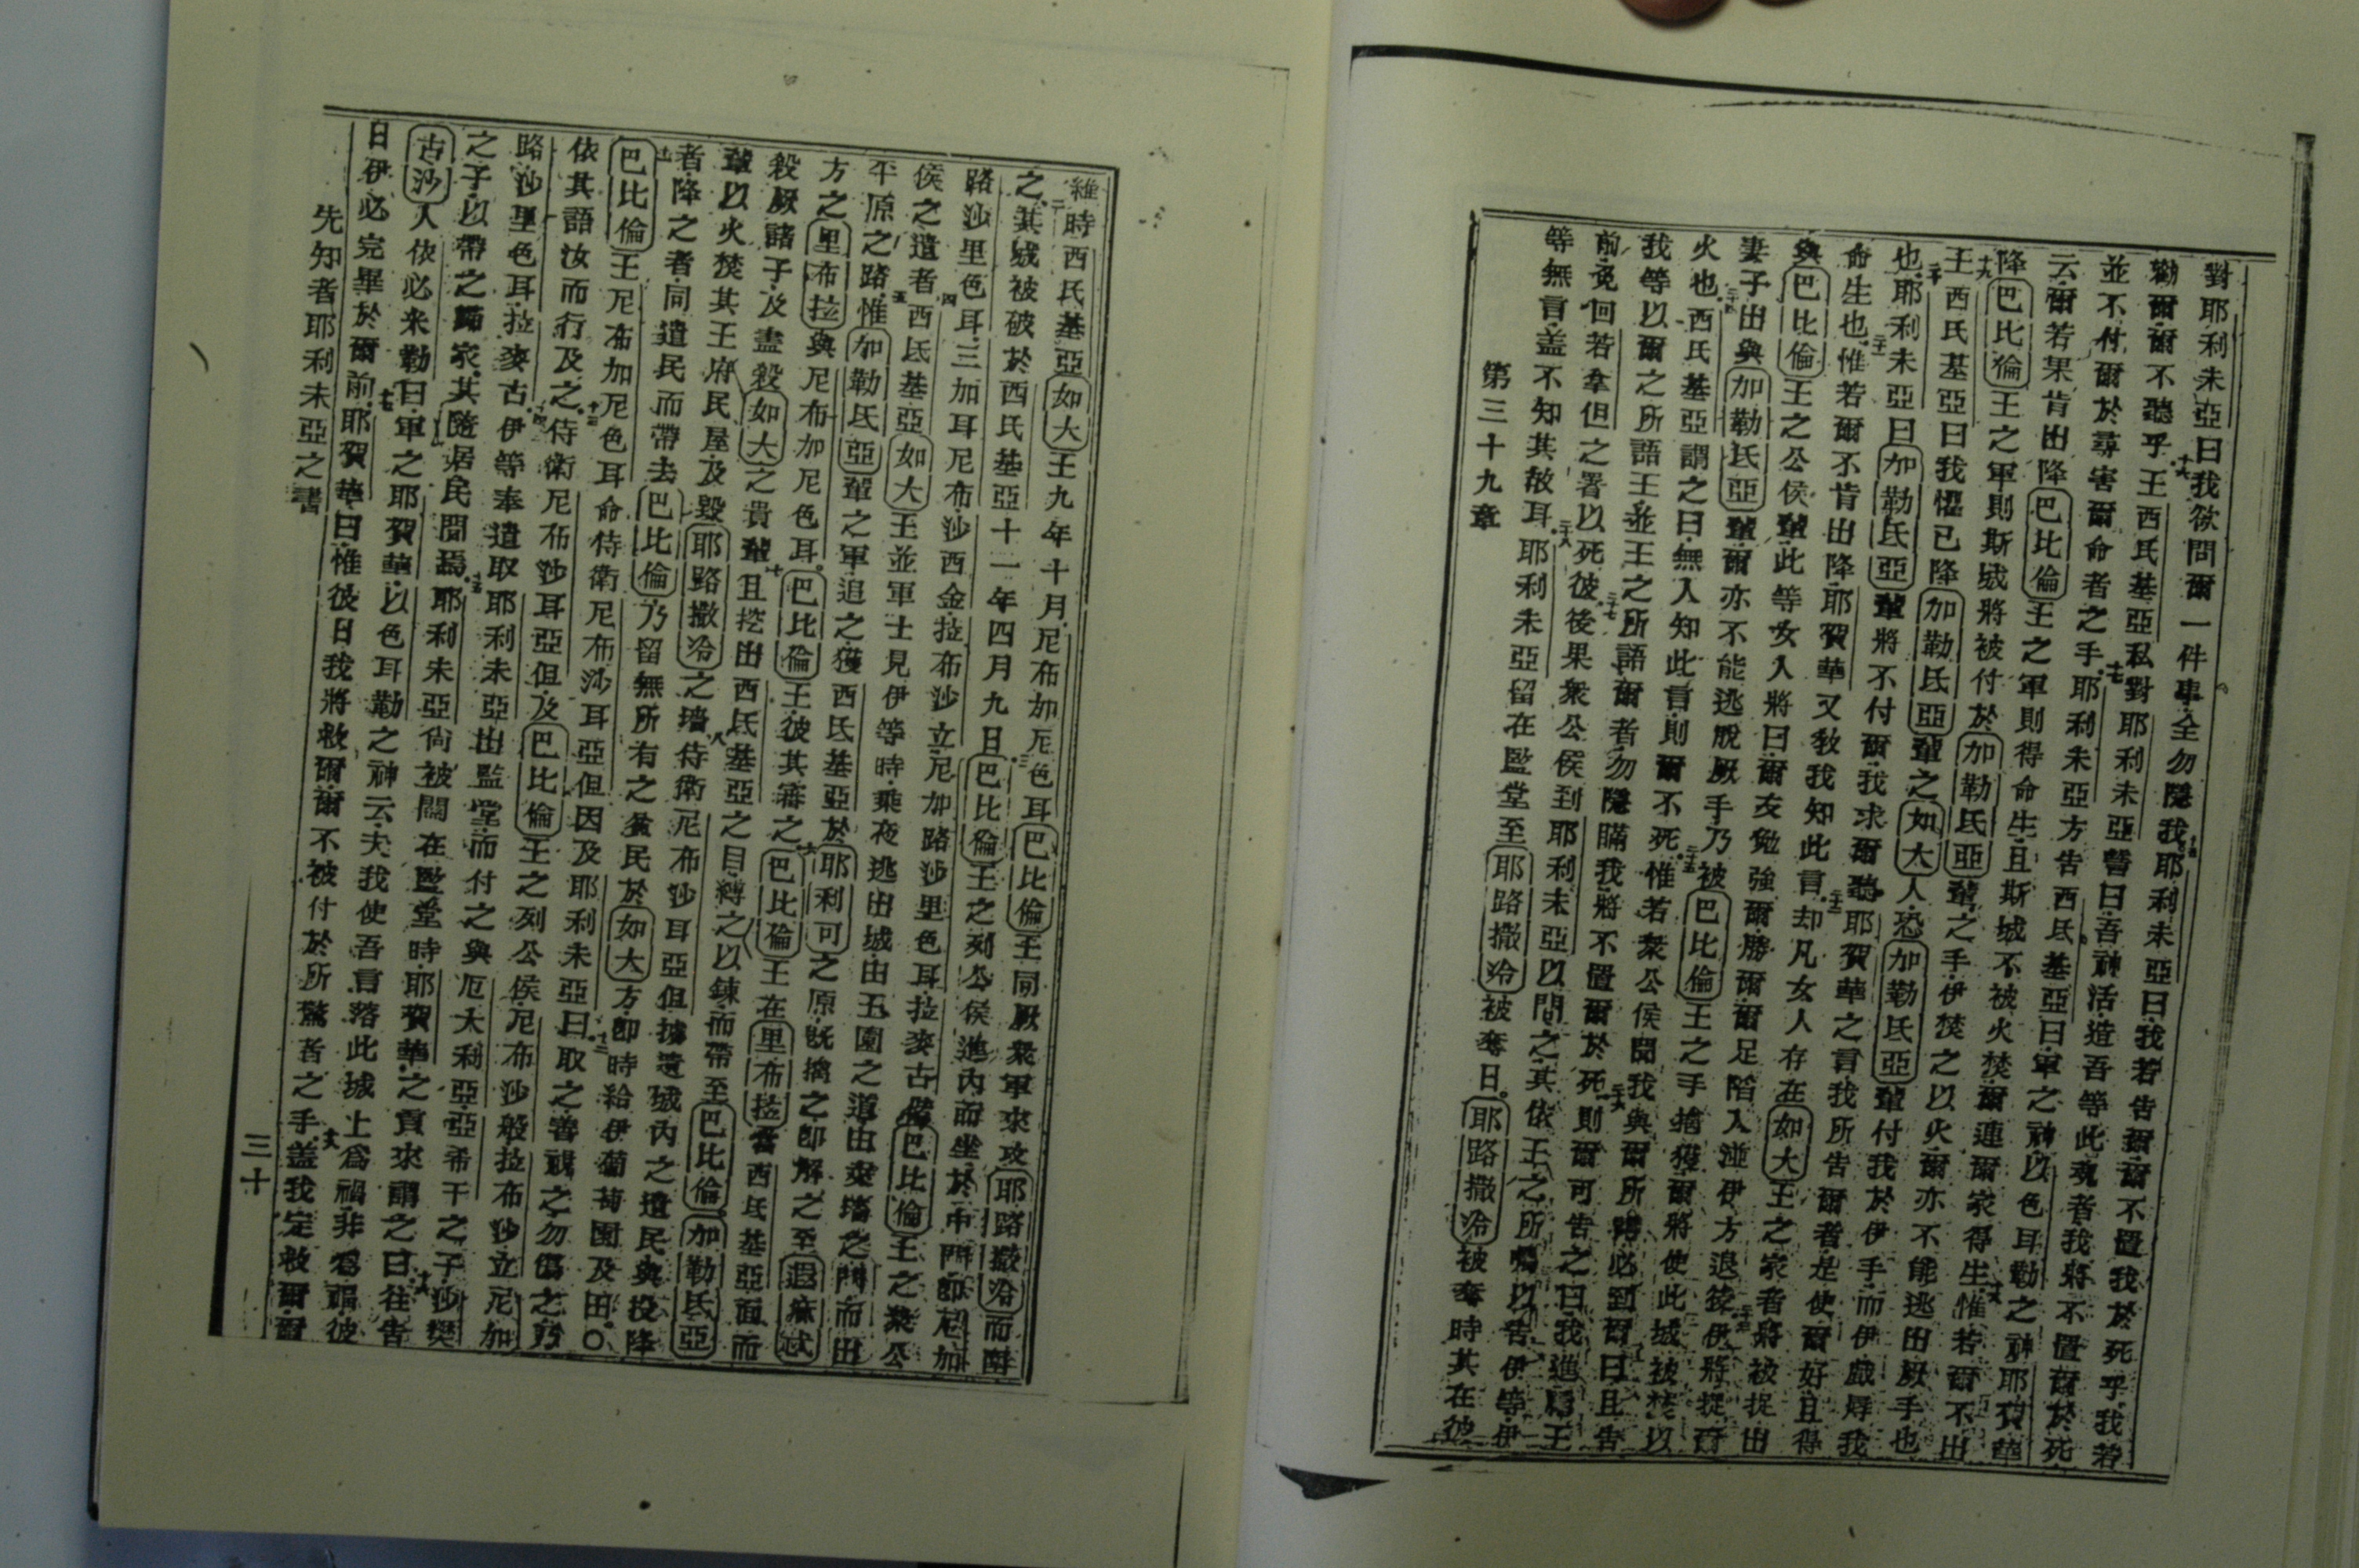 對耶利未亞曰我欲問爾一件事全勿隱我十五耶利未亞曰我若告爾爾不置我於死乎我若
勸爾爾不聽乎十六王西氏基亞私對耶利未亞誓曰吾神活造吾等此魂者我將不置爾於死
並不付爾於尋害爾命者之手十七耶利未亞方告西氏基亞曰軍之神以色耳勒之神耶賀華
云爾若果肯出降巴比倫王之軍則得命生且斯城不被火焚爾連爾家得生十八惟若爾不出
降巴比倫王之軍則斯城將被付於加勒氐亞輩之手伊焚之以火爾亦不能逃出厥手也
十九王西氏基亞曰我懼已降加勒氐亞輩之如大人恐加勒氐亞輩付我於伊手而伊戲辱我
也二十耶利未亞曰加勒氐亞輩將不付爾我求爾聽耶賀華之言我所告爾者是使爾好且得
命生也二十一惟若爾不肯出降耶賀華又教我知此言二十二却凡女人存在如大王之家者將被捉出
與巴比倫王之公侯輩此等女人將曰爾友勉強爾勝爾爾足陷入湴伊方退後二十三伊將捉爾
妻子出與加勒氐亞輩爾亦不能逃脫厥手乃被巴比倫王之手擒獲爾將使此城被焚以
火也二十四西氏基亞謂之曰無人知此言則爾不死二十五惟若衆公侯聞我與爾所語必到爾曰且告
我等以爾之所語王並王之所語爾者勿隱瞞我將不置爾於死二十六則爾可告之曰我進為王
前免回若拿但之署以死彼二十七後果衆公侯到耶利未亞以問之其依王之所囑以告伊等伊
等無言蓋不知其故耳二十八耶利未亞留在監堂至耶路撒冷被奪日耶路撒冷被奪時其在彼
第三十九章
維時西氏基亞如大王九年十月尼布加尼色耳巴比倫王同厥衆軍來攻耶路撒冷而
之二其城被破於西氏基亞十一年四月九日三巴比倫王之列公侯進內而坐於中門卽尼加
路沙里色耳三加耳尼布沙西金拉布沙立尼加路沙里色耳拉麥古偕巴比倫王之衆公
侯之遺者四西氏基亞如大王並軍士見伊等時乘夜逃出城由王園之道由兩墻之門而出
平原之路五惟加勒氐亞輩之軍追之獲西氏基亞於耶利可之原旣擒之卽解之至遏麻忒
方之里布拉與尼布加尼色耳巴比倫王彼其審之六巴比倫王在里布拉當西氏基亞面而
殺厥諸子及盡殺如大之貴輩七且挖出西氏基亞之目縛之以鍊而帶至巴比倫八加勒氐亞
輩以火焚其王府民屋及毀耶路撒冷之墻九侍衛尼布沙耳亞但擄遺城內之遺民與投降
者降之者同遺民而帶去巴比倫十乃留無所有之貧民於如大方卽時給伊葡萄園及田〇
十一巴比倫王尼布加尼色耳命侍衛尼布沙耳亞但因及耶利未亞曰十二取之善視之勿傷之乃
依其語汝而行及之十三侍衛尼布沙耳亞但及巴比倫王之列公侯尼布沙般拉布沙立尼加
路沙里色耳拉麥古十四伊等奉遣取耶利未亞出監堂而付之與厄大利亞亞希干之子沙樊
之子以帶之歸家其隨居民間焉十五耶利未亞尙被關在監堂時耶賀華之言來謂之曰十六往告
古沙人依必米勒曰軍之耶賀華以色耳勒之神云夫我使吾言落此城上爲禍非爲福彼
日伊必完畢於爾前十七耶賀華曰惟彼日我將救爾爾不被付於所驚者之手十八蓋我定救爾爾
先知者耶利未亞之書
三十